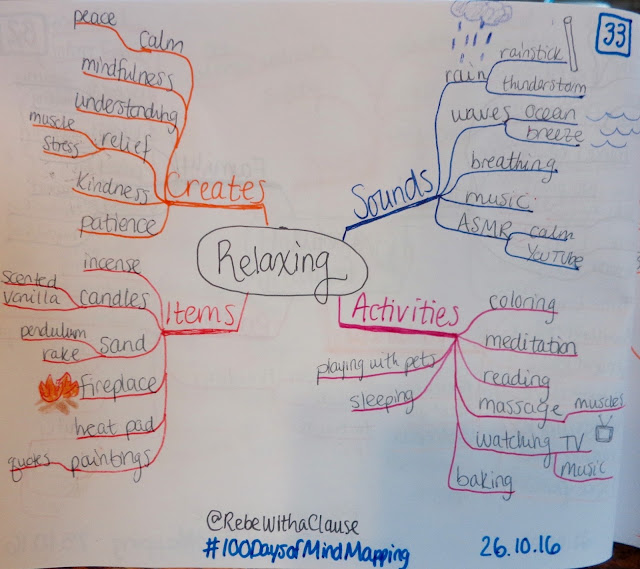 33
Relaxing
Creates
calm
peace
mindfulness
understanding
relief
muscle
stress
kindness
patience
Sounds
rain
rainstick
thunderstorm
waves
ocean
breeze
breathing
music
ASMR
calm
YouTube
Items
incense
candles
scented
vanilla
sand
pendulum
rake
fireplace
heat pad
paintings
quotes
Activities
coloring
meditation
reading
massage
muscles
watching TV
music
baking
playing with pets
sleeping
@RebeWithaClause
#100DaysofMindMapping
26.10.16